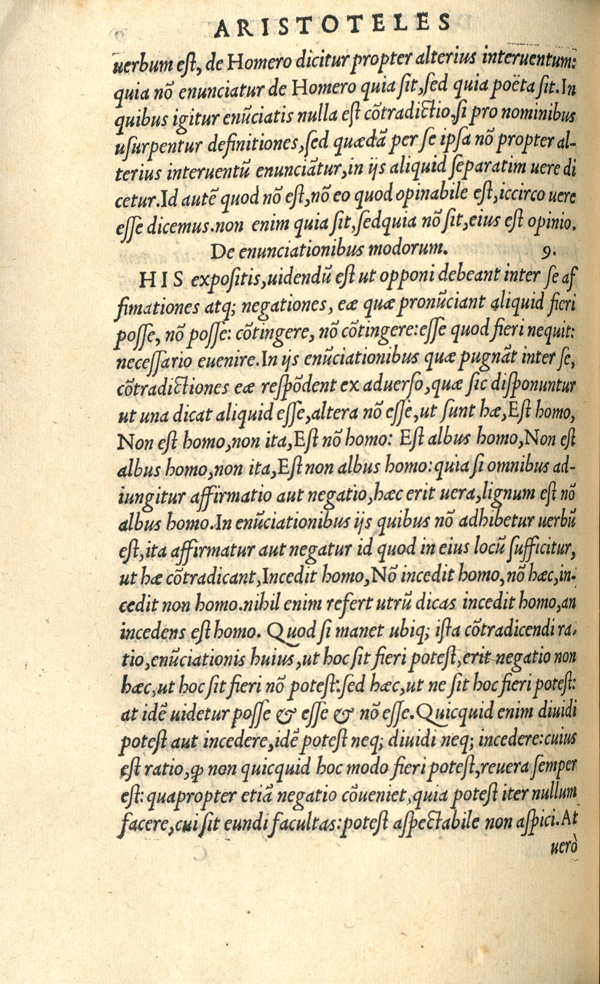 ARISTOTELES
uerbum est, de Homero dicitur propter alterius interuentum:
quia nõ enunciatur de Homero quia sit, sed quia poëta sit. In
quibus igitur enũciatis nulla est cõtradictio, si pro nominibus
usurpentur definitiones, sed quædã per se ipsa nõ propter al-
terius interuentũ enunciãtur, in ijs aliquid separatim uere di
cetur. Id autẽ quod nõ est, nõ eo quod opinabile est, iccirco uere
esse dicemus. non enim quia sit, sedquia nõ sit, eius est opinio.
De enunciationibus modorum. 9.
HIS expositis, uidendũ est ut opponi debeant inter se af
fimationes atq; negationes, eæ quæ pronũciant aliquid fieri
posse, nõ posse: cõtingere, nõ cõtingere: esse quod fieri nequit:
necessario euenire. In ijs enũciationibus quæ pugnãt inter se,
cõtradictiones eæ respõdent ex aduerso, quæ sic disponuntur
ut una dicat aliquid esse, altera nõ esse, ut sunt hæ, Est homo,
Non est homo, non ita, Est nõ homo: Est albus homo, Non est
albus homo, non ita, Est non albus homo: quia si omnibus ad-
iungitur affirmatio aut negatio, hæc erit uera, lignum est nõ
albus homo. In enũciationibus ijs quibus nõ adhibetur uerbũ
est, ita affirmatur aut negatur id quod in eius locũ sufficitur,
ut hæ cõtradicant, Incedit homo, Nõ incedit homo, nõ hæc, in-
cedit non homo. nihil enim refert utrũ dicas incedit homo, an
incedens est homo. Quod si manet ubiq; ista cõtradicendi ra-
tio, enũciationis huius, ut hoc sit fieri potest, erit negatio non
hæc, ut hoc sit fieri nõ potest: sed hæc, ut ne sit hoc fieri potest:
at idẽ uidetur posse & esse & nõ esse. Quicquid enim diuidi
potest aut incedere, idẽ potest neq; diuidi neq; incedere: cuius
est ratio, ꝙ non quicquid hoc modo fieri potest, reuera semper
est: quapropter etiã negatio cõueniet, quia potest iter nullum
facere, cui sit eundi facultas: potest aspectabile non aspici. At
uerò